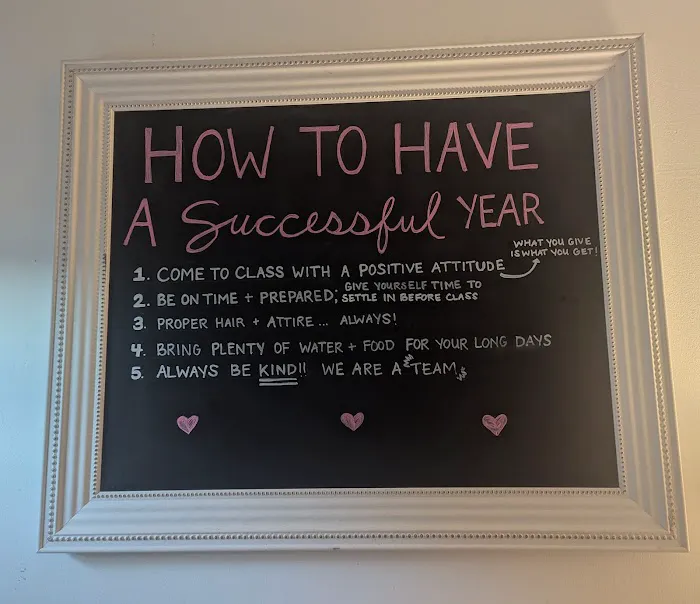 HOW TO HAVE
A Successful YEAR
1. COME TO CLASS WITH A POSITIVE ATTITUDE
WHAT YOU GIVE
IS WHAT YOU GET!
2. BE ON TIME + PREPARED; GIVE YOURSELF TIME TO
SETTLE IN BEFORE CLASS
3. PROPER HAIR + ATTIRE... ALWAYS!
4. BRING PLENTY OF WATER + FOOD FOR YOUR LONG DAYS
5. ALWAYS BE KIND!! WE ARE A TEAM